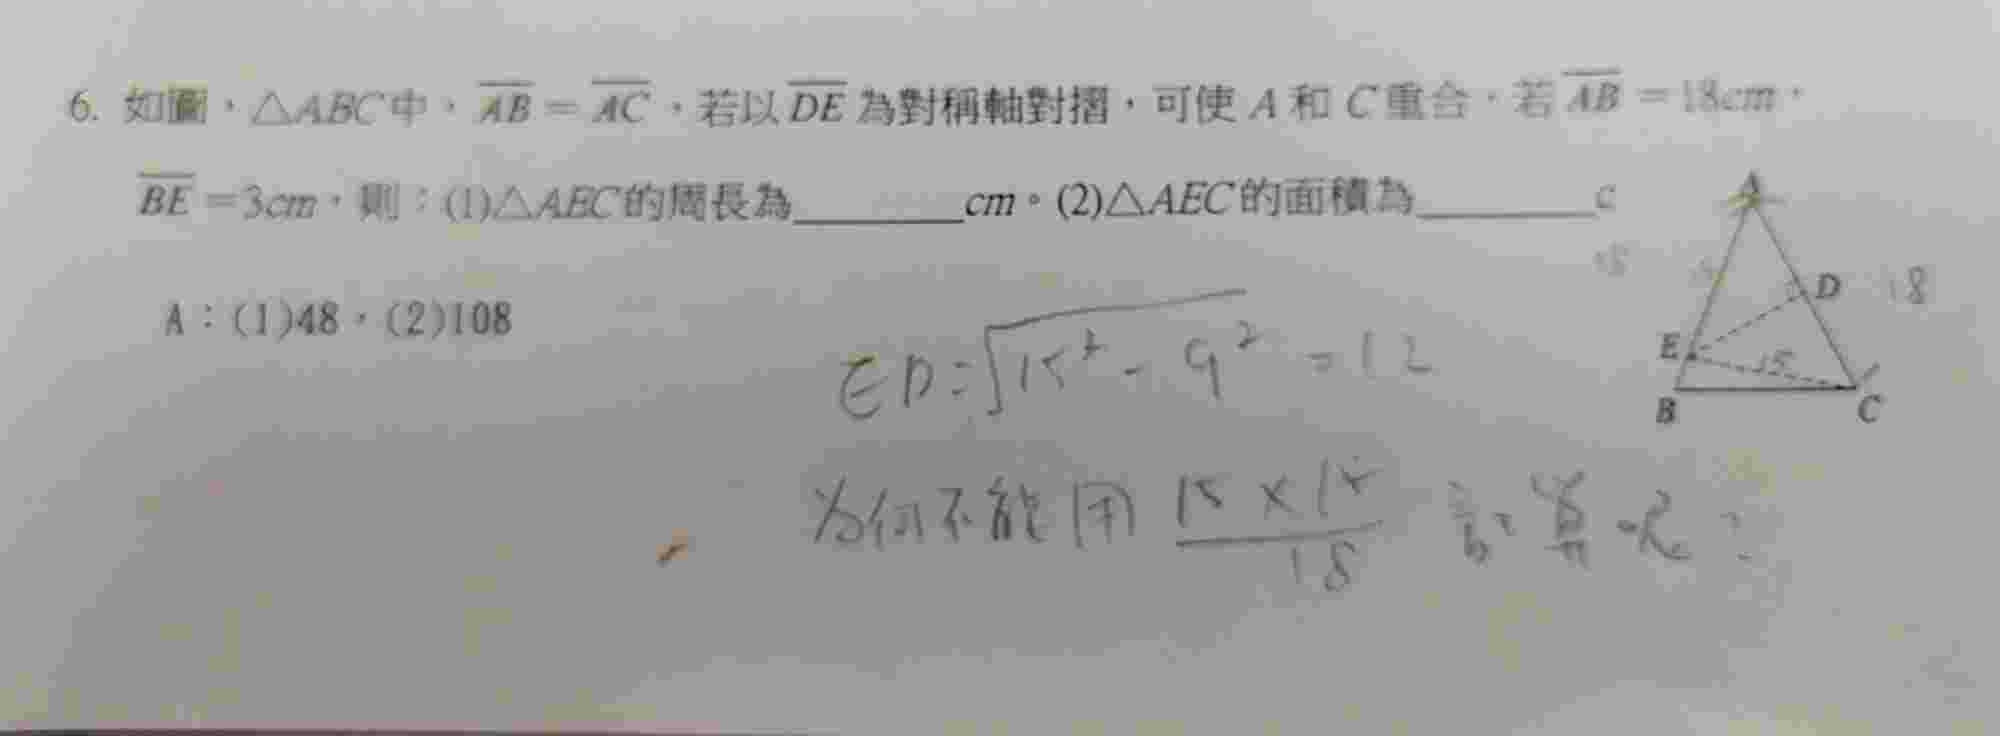 6. 如圖，△ABC中，AB＝AC，若以DE為對稱軸對摺，可使A和C重合。若AB＝18cm，
BE＝3cm，則：(1)△AEC的周長為______cm。(2)△AEC的面積為______c
A
18
D
E
15
B
C
A：(1)48，(2)108
ED=√15²-9² =12
为何不能用 15×15/18 計算呢?